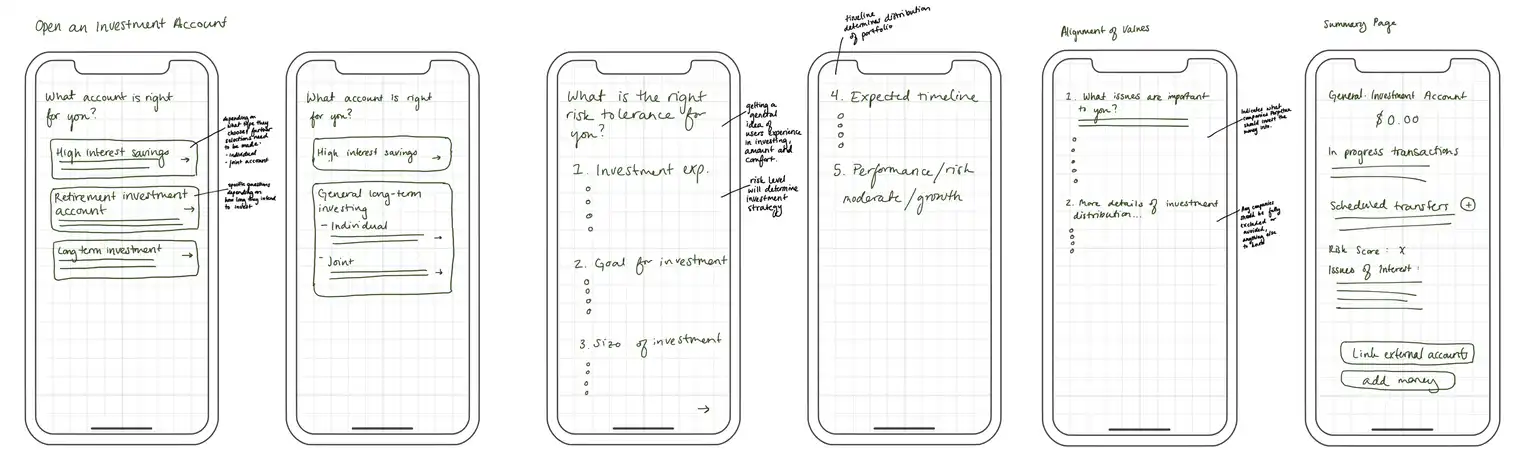 Open an Investment Account
What account is right
for you?
High interest savings
Retirement investment
account
Long term investment
depending on
what type they
choose, further
selections need
to be made.
- individual
- joint account
specific questions
depending on
how long they intend
to invest
What account is right
for you?
High interest savings
General long-term
investing
- Individual
- Joint
What is the right
risk tolerance for
you?
1. Investment exp.
2. Goal for investment
3. Size of investment
getting a
general
idea of
users experience
in investing,
amount and
comfort.
risk level
will determine
investment
strategy
timeline
determines distribution
of portfolio
4. Expected timeline
5. Performance/risk
moderate/growth
Alignment of Values
1. What issues are important
to you?
2. More details of investment
distribution...
Indicates what
companies
should invest the
money into.
Any companies
should be fully
excluded or
avoided,
anything else
to
Summary Page
General Investment Account
$0.00
In progress transactions
Scheduled transfers +
Risk Score: X
Issues of Interest:
Link external accounts
add money